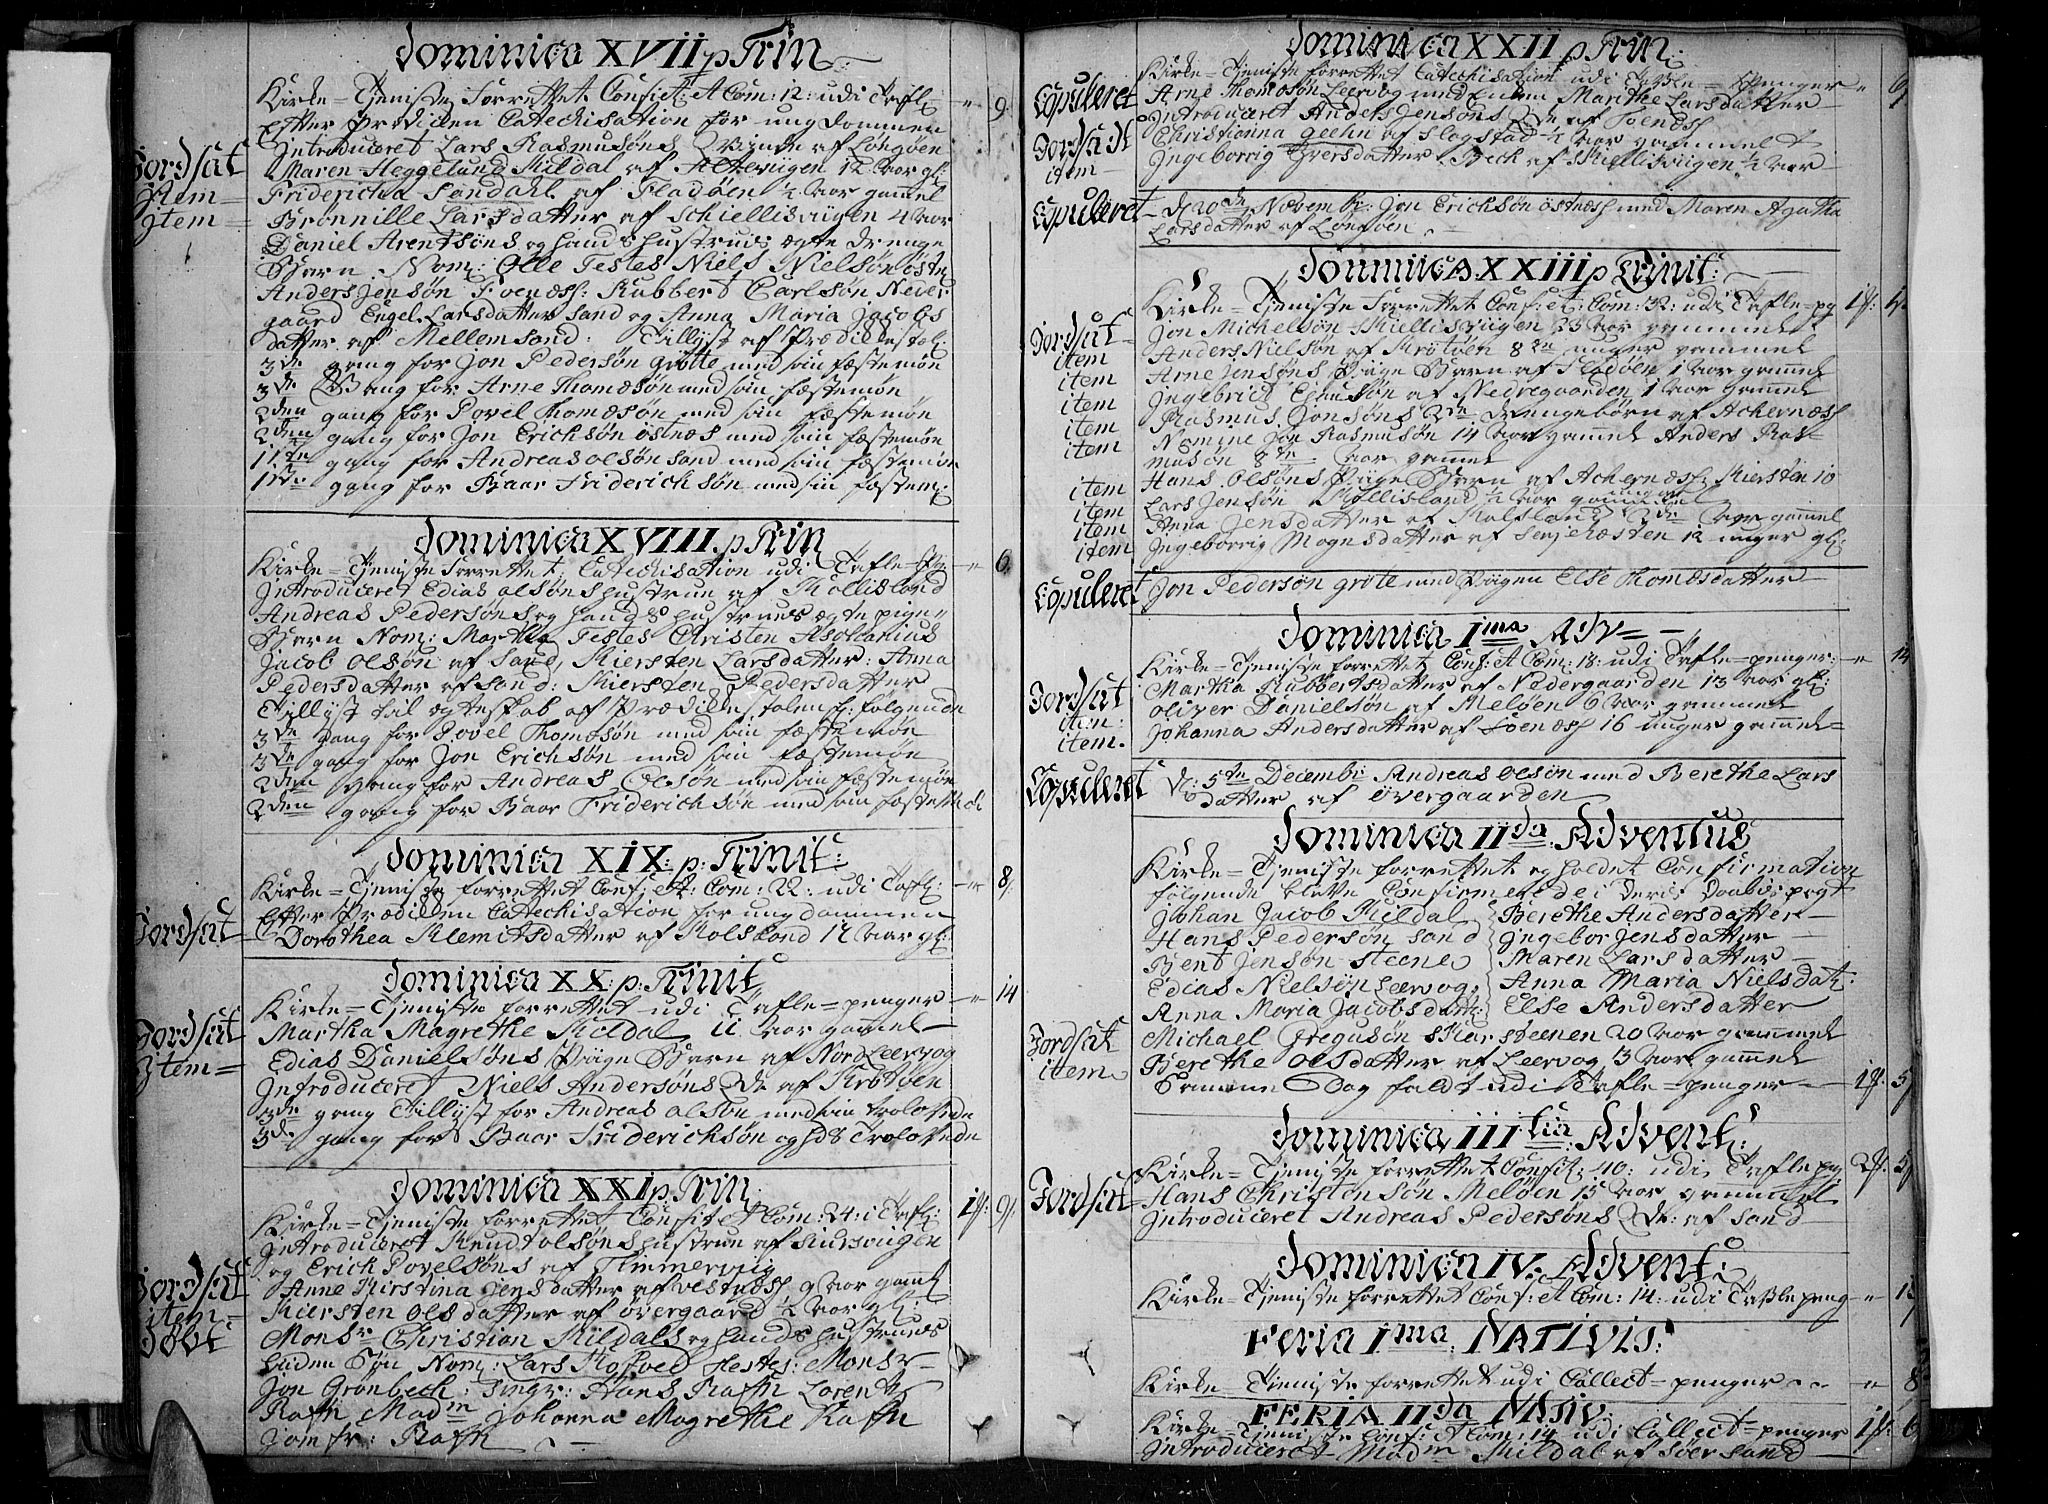 Dominica XVII p Trin
Kirke-Tjeniste Forrettet Confict: A Com: 12: udi Tafl: -"- 9
Efter Prædiken Catechisation for ungdommen
Introduceret Lars Rasmusøns Qvinde af Longøen
Jordsat Maren Heggelund Kildal af Altevigen 12 Aar gl:
Item Friderica Sandahl af Fladøen ½ Aar gammel
Item Brønnille Larsdatter af Schiellisviigen 4 Aar
Daniel Arentsøns og hands hustrues ægte drenge
Barn Nom: Olle Testes Niels Nielsøn østn
Anders Jensøn Foenæss: Rubbert Carlsøn Neder
gaard Engel Larsdatter Sand og Anna Maria Jacobs
datter af Mellemsand: Tillyst af Prædikestol:
3de gang for Jon Pedersøn grøtte med sin fæstemøe
3de Gang for Arne Thomæsøn med sin fæstemøe
2den gang for Povel Thomæsøn med sin fæstemøe
2den gang for Jon Erichsøn østnæs med sin fæstemøe
1ste gang for Andreas olsøn sand med sin fæstemøe
1ste gang for Baar Friderichsøn med sin fæstem:
Dominica XVIII p Trin
Kirke-Tjeniste Forrettet Catechisation udi Tafle-p -"- 6
Introduceret Edias olsøns hustrue af Kollisland
Andreas Pedersøns og hands hustrues ægte pige
Barn Nom: Martha Testes Christen Aschanius
Jacob olsøn af Sand, Kiersten Larsdatter: Anna
Pedersdatter af sand: Kiersten Pedersdatter
Tillyst til ægteskab af Prædikestolen f: følgende
3de gang for Povel Thomæsøn med sin fæstemøe
3de gang for Jon Erichsøn med sin fæstemøe
2den gang for Andreas Olsøn med sin fæstemøe
2den gang for Baar Friderichsøn med sin fæstemøe
Dominica XIX: p: Trinit:
Kirke-Tjeniste forrettet Conf: et Com: 22: udi Tafl: -"- 8
Efter Prædicken Catechisation for ungdommen
Jordsat Dorothea Klemitsdatter af Rolsland 12 Aar gl:
Dominica XX: p: Trinit
Kirke-Tjeniste forrettet udi Tafle-penger -"- 14
Jordsat Martha Magrethe Kildal 11 Aar gammel
Item Edias Danielsøns Piige Barn af Nordleervog
Introduceret Niels Andersøns Qv: af Krøtøen
3de gang Tillyst for Andreas olsøn med sin trolovede
3de gang for Baar Friderichsøn og hds Trolovede
Dominica XXI p. Trin.
Kirke-Tjeniste forrettet Confit et Com: 24: i Tafl: 1 9
Introduceret Knud olsøns hustrue af
og Erich Povelsøns af Timmervig
Jordsat Anne Kirstina Jensdatter af vestnæss 9 Aar gaml
item Kiersten olsdatter af øvergaard ½ Aar gl:
Døbt Monsr Christian Kildals og hands hustrues
liden Søn Nom: Lars Testes: Monsr
Jon Grønbech: Singr: Hans Rafn Lorentz
Rafn Madm Johanna Magrethe Rafn
Jomfr: Rafn
Dominica XXII p Trin:
Kirke-Tjeniste forrettet Catechisation udi Tafle-penger " 6
Copuleret Arne Thomæsøn Leervog med Enken Marithe Larsdatter
Introduceret Anders Jensøns Qv: af Foenæss
Jordsat Christianna geehn af Slogstad ½ Aar gammel
item Ingeborrig Iversdatter Bech af Skiellisviigen ½ Aar
Copuleret d. 20de Novembr: Jon Erichsøn østnæss med Maren Agatha
Larsdatter af Longøen
Dominica XXIII p Trinit:
Kirke-Tjeniste forrettet Conf: et: Com: 32: udi Tafle-pg 1
Jordsat Jon Michelsøn Skiellisviigen 23 Aar gammel
item Anders Nielsøn af Krøtøen 8te uger gammel
item Arne Jensøns Piige Barn af Fladøen 1 Aar gammel
item Ingebrict Elhusøn af Nedregaarden 1 Aar gammel
item Rasmus Jonsøns 2de drengebørn af Achernæss
item Nomine Jon Rasmusøn 14 Aar gammel Anders Ras-
musøn 8te Aar gammel
item Hans Olsøns Piige Barn af Achernæss Kiersten 10
item Lars Jensøn Kollisland ½ Aar gammel
item Anna Jensdatter af Kolsland 2de Aar gammel
item Ingeborrig Mognsdatter af Senjehesten 12 uger gl:
Copuleret Jon Pedersøn grøte med Pigen Else Thomæsdatter
Dominica Ima Adv
Kirke-Tjeniste forrettet Conf: A Com: 18: udi Tafle-penger: -"- 14
Jordsat Martha Rubbertsdatter af Nedergaarden 13 Aar gl:
item: Oliver Danielsøn af Meløen 6 Aar gammel
item. Johanna Andersdatter af Foenæss 16 uger gammel
Copuleret d: 5te Decembr: Andreas olsøn med Berethe Lars
datter af øvergaarden
Dominica IIda Adventus
Kirke-Tjeniste forrettet og holdet Confirmation
følgende bleve Confirmerede i Deris Daabs pagt
Johan Jacob Kildal Berethe Andersdatter
Hans Pedersøn sand Ingebor Jensdatter
Bent Jensøn Steene Maren Larsdatter
Edias Nielsøn Leervog, Anna Maria Nielsdat:
Anna Maria Jacobsdatt: Else Andersdatter
Jordsat Michael Gregusøn Skarsteenen 20 Aar gammel
item Berethe olsdatter af Leervog 13 Aar gammel
Samme Dag faldt udi Tafle-penger 1 5
Dominica IIItia Advent:
Kirke-Tjeniste forrettet Confit: 40: udi Tafle pg 2 5
Jordsat Hans Christensøn Meløen 15 Aar gammel
Introduceret Andreas Pedersøns Qv: af sand
Dominica IV: Advent:
Kirke-Tjeniste forrettet Conf: A Com: 14: udi Tafle peng -"-
Feria Ima Nativis:
Kirke-Tjeniste forrettet udi Collect-penger -"- 8
FERIA IIda Nativ
Kirke-Tjeniste Conf: A Com: 14 udi Collect-penger 1 6
Introduceret Madm Kildal af Søer sand